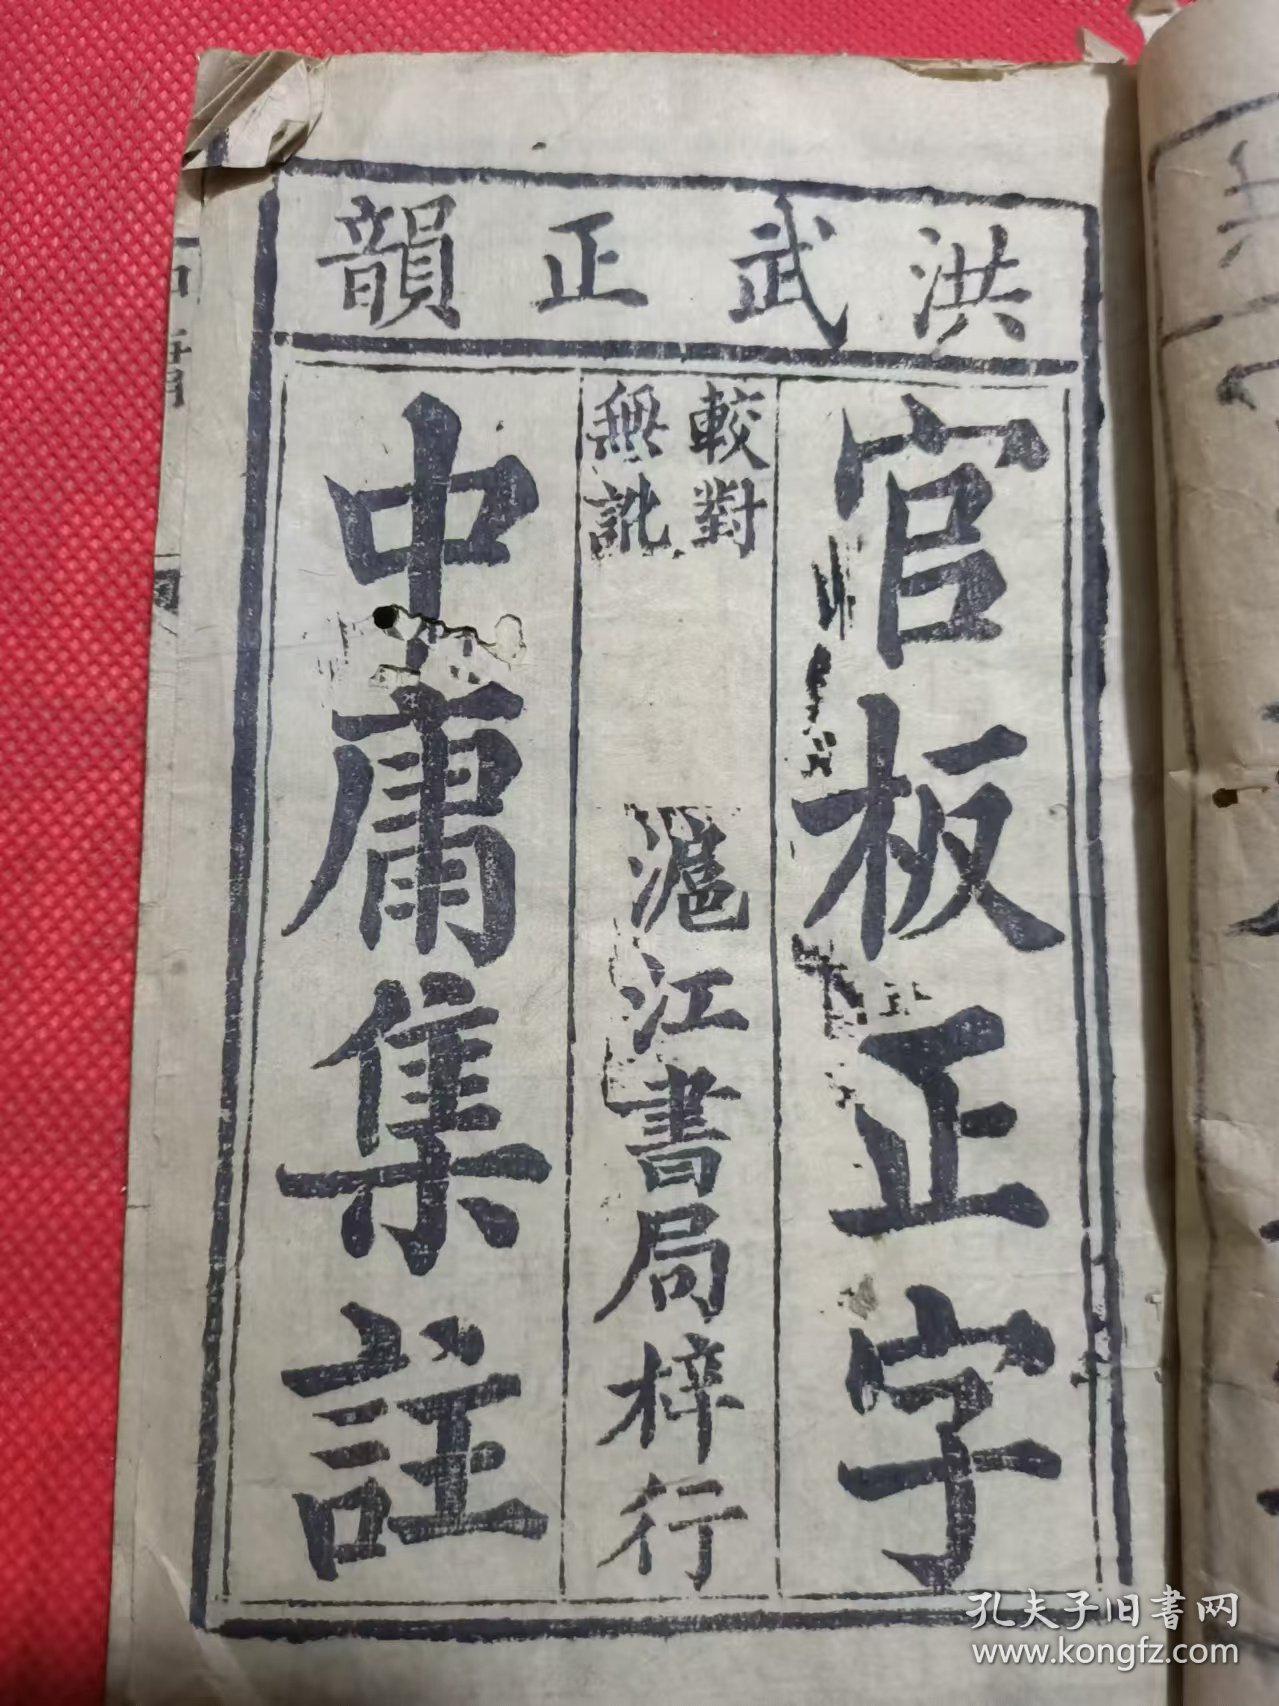 洪武正韻
官板正字
較對
無訛
滬江書局梓行
中庸集註
孔夫子旧书网
www.kongfz.com